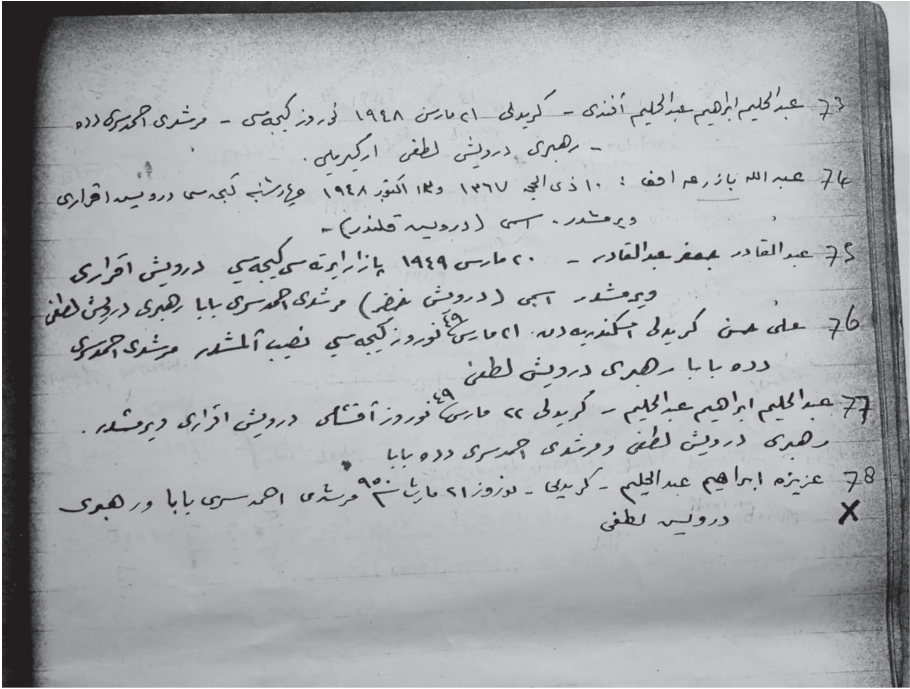 73 عبدالحليم ابراهيم عبدالحليم أفندى - كريدلى ٢١ مارس ١٩٤٨ نوروز كيجه سى - مرشدى احمد سرى دده
- رهبرى درويش لطفى
74 عبد الله : ١٠ ذى الحجه ١٣٦٧ و اكتوبر ١٩٤٨ كيجه سى درويس اقرارى
ويرمشدر . اسمى (درويس قلندر) -
75 عبدالقادر جعفر عبدالقادر - ٢٠ مارس ١٩٤٩ پازار ايرته سى كيجه سي درويش اقرارى
ويرمشدر اسمى (درويش خضر) مرشدى احمد سرى بابا رهبرى درويش لطفى
76 على حسن كريدلى اسكندريه دن ٢١ مارس ٤٩ نوروز كيجه سي نصيب آلمشدر مرشدى احمد سرى
دده بابا رهبرى درويش لطفى
77 عبدالحليم ابراهيم عبدالحليم - كريدلى ٢٢ مارس ٤٩ نوروز آقشامى درويش اقرارى ويرمشدر .
رهبرى درويش لطفى و مرشدى احمد سرى دده بابا
78 عزيزه ابراهيم عبدالحليم - كريدلى - نوروز ٢١ مارت ٩٥٠ مرشدى احمد سرى بابا و رهبرى
X درويس لطفى